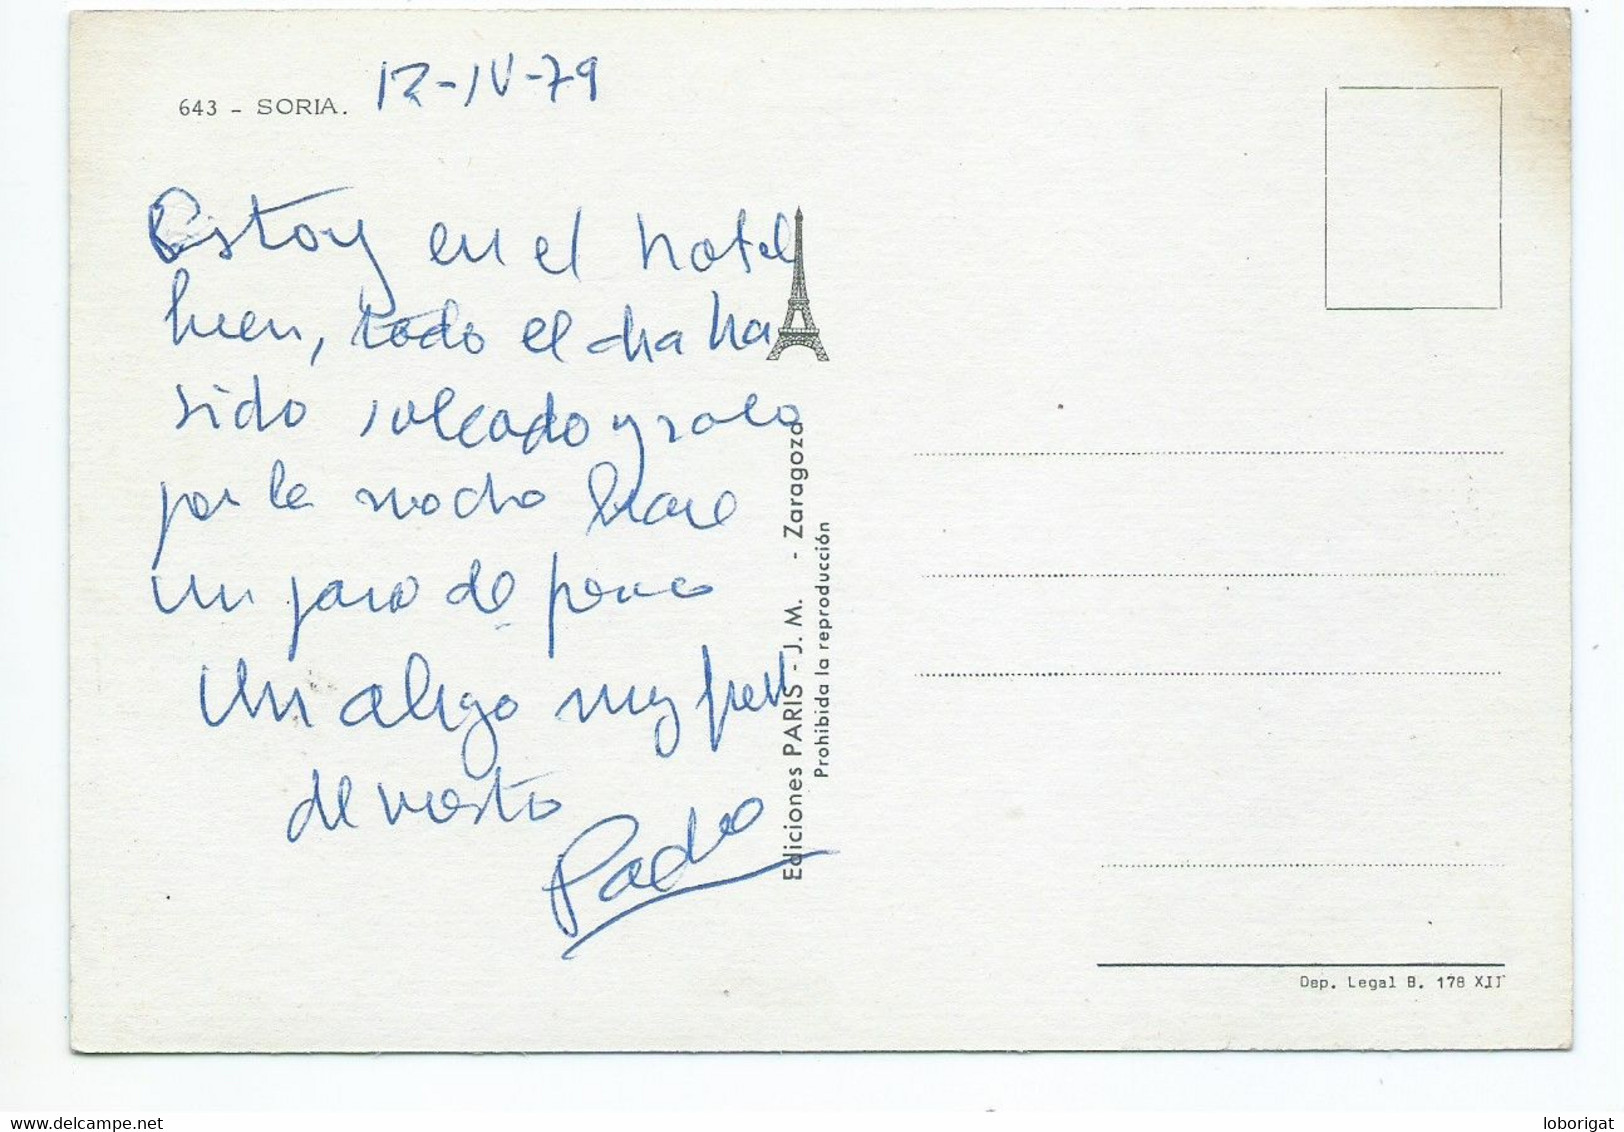 643 - SORIA.
12-IV-79
Estoy en el hotel
bien, todo el dia ha
sido soleado y solo
por la noche hace
un poco de
Un abrigo muy
de
Ediciones PARIS - J. M. - Zaragoza
Prohibida la reproducción
Dep. Legal B. 178 XII
loborigat